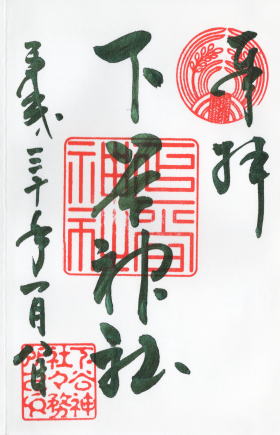 奉拝
下谷神社
平成三十年一月八日
下谷
神社
下谷神
社々務
所之印